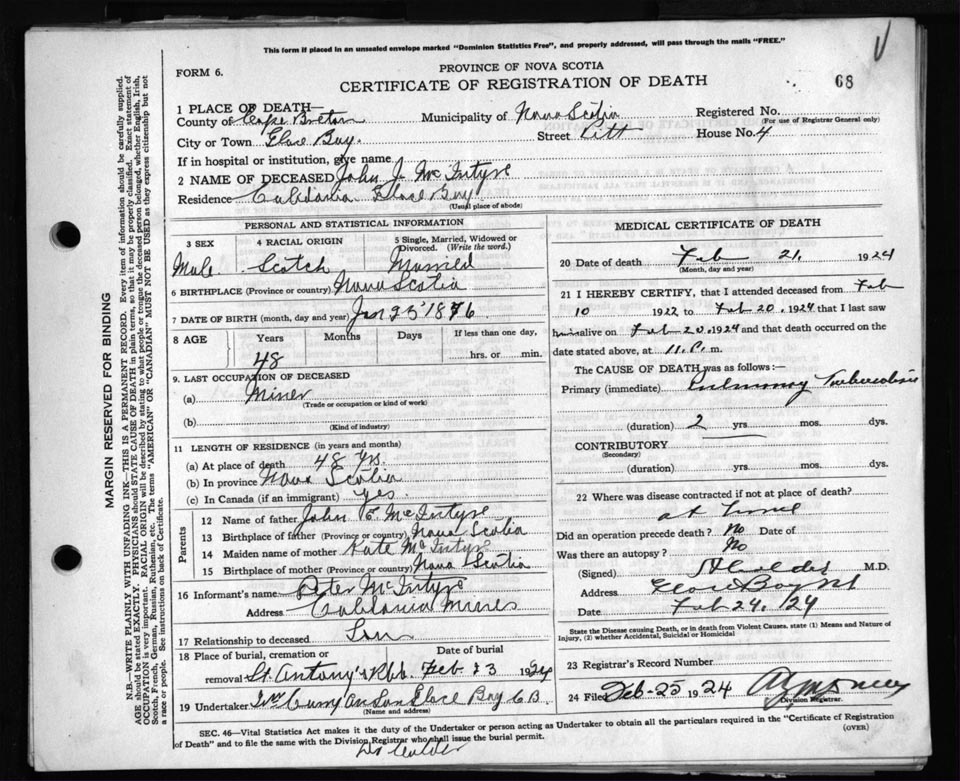 This form if placed in an unsealed envelope marked "Dominion Statistics Free", and properly addressed, will pass through the mails "FREE."
FORM 6.
PROVINCE OF NOVA SCOTIA
CERTIFICATE OF REGISTRATION OF DEATH
68
1 PLACE OF DEATH—
County of Cape Breton Municipality of Nova Scotia Registered No.
(For use of Registrar General only)
City or Town Glace Bay. Street Pitt House No. 4
If in hospital or institution, give name
2 NAME OF DECEASED John J. McIntyre
Residence Caledonia Glace Bay
(Usual place of abode)
PERSONAL AND STATISTICAL INFORMATION
3 SEX 4 RACIAL ORIGIN 5 Single, Married, Widowed or Divorced. (Write the word.)
Male Scotch Married
6 BIRTHPLACE (Province or country) Nova Scotia
7 DATE OF BIRTH (month, day and year) Jan 25 1876
8 AGE Years Months Days If less than one day,
48 hrs. or min.
9. LAST OCCUPATION OF DECEASED
(a) Miner
(Trade or occupation or kind of work)
(b)
(Kind of industry)
11 LENGTH OF RESIDENCE (in years and months)
(a) At place of death 48 yrs.
(b) In province Nova Scotia
(c) In Canada (if an immigrant) yes.
Parents
12 Name of father John McIntyre
13 Birthplace of father (Province or country) Nova Scotia
14 Maiden name of mother Kate McIntyre
15 Birthplace of mother (Province or country) Nova Scotia
16 Informant's name Peter McIntyre
Address Caledonia Mines
17 Relationship to deceased Son
18 Place of burial, cremation or removal Date of burial
St. Antony's Feb 23 1924
19 Undertaker Son Glace Bay C B
(Name and address)
MEDICAL CERTIFICATE OF DEATH
20 Date of death Feb 21, 1924
(Month, day and year)
21 I HEREBY CERTIFY, that I attended deceased from Feb
10 1922 to Feb 20, 1924 that I last saw
him alive on Feb 20, 1924 and that death occurred on the
date stated above, at 11. P. m.
The CAUSE OF DEATH was as follows:—
Primary (immediate) Pulmonary Tuberculosis
(duration) 2 yrs. mos. dys.
CONTRIBUTORY
(Secondary)
(duration) yrs. mos. dys.
22 Where was disease contracted if not at place of death?
at home
Did an operation precede death? No Date of
Was there an autopsy? No
(Signed) M.D.
Address Glace Bay NS
Date Feb 24, '24
State the Disease causing Death, or in death from Violent Causes, state (1) Means and Nature of Injury, (2) whether Accidental, Suicidal or Homicidal
23 Registrar's Record Number
24 Filed Feb-25 1924
Division Registrar.
SEC. 46—Vital Statistics Act makes it the duty of the Undertaker or person acting as Undertaker to obtain all the particulars required in the "Certificate of Registration
of Death" and to file the same with the Division Registrar who shall issue the burial permit.
(OVER)
MARGIN RESERVED FOR BINDING
N.B.—WRITE PLAINLY WITH UNFADING INK—THIS IS A PERMANENT RECORD. Every item of information should be carefully supplied.
AGE should be stated EXACTLY. PHYSICIANS should STATE CAUSE OF DEATH in plain terms, so that it may be properly classified. Exact statement of
OCCUPATION is very important. RACIAL ORIGIN will be described by stating to what people or tongue the deceased person belonged, whether English, Irish,
Scotch, French, German, Russian, Ruthenian, etc. The terms "AMERICAN" or "CANADIAN" MUST NOT BE USED as they express citizenship but not
a race or people. See instructions on back of Certificate.